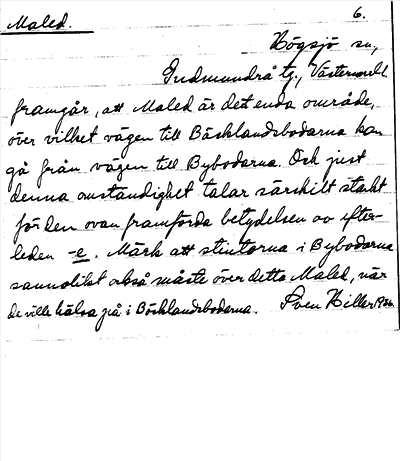 Maled. 6.
Högsjö sn,
Gudmundrå tg., Västernorrl.
framgår, att Maled är det enda område,
över vilket vägen till Bäcklandsbodarna kan
gå från vägen till Bybodarna. Och just
denna omständighet talar särskilt starkt
för den ovan framförda betydelsen av efter-
leden -e. Märk att stintorna i Bybodarna
sannolikt också måste över detta Maled, när
de ville hälsa på i Bäcklandsbodarna. Sven Hiller